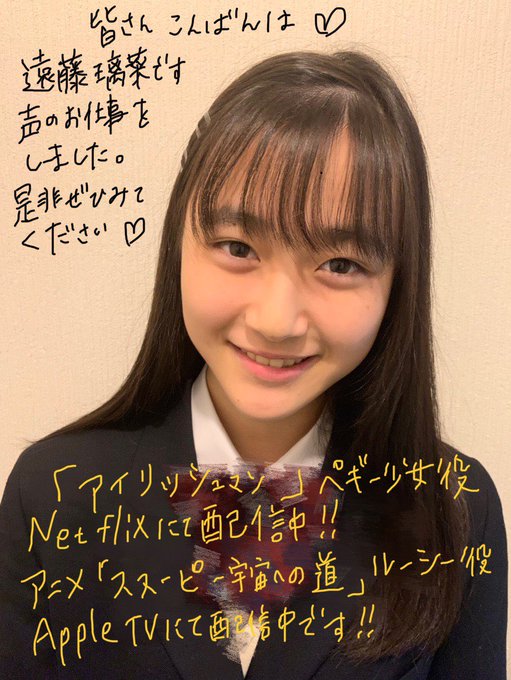 皆さん こんばんは♡
遠藤璃菜です
声のお仕事を
しました。
是非ぜひみて
ください♡
「アイリッシュマン」ペギー少女役
Netflixにて配信中!!
アニメ「スヌーピー宇宙への道」ルーシー役
Apple TVにて配信中です!!